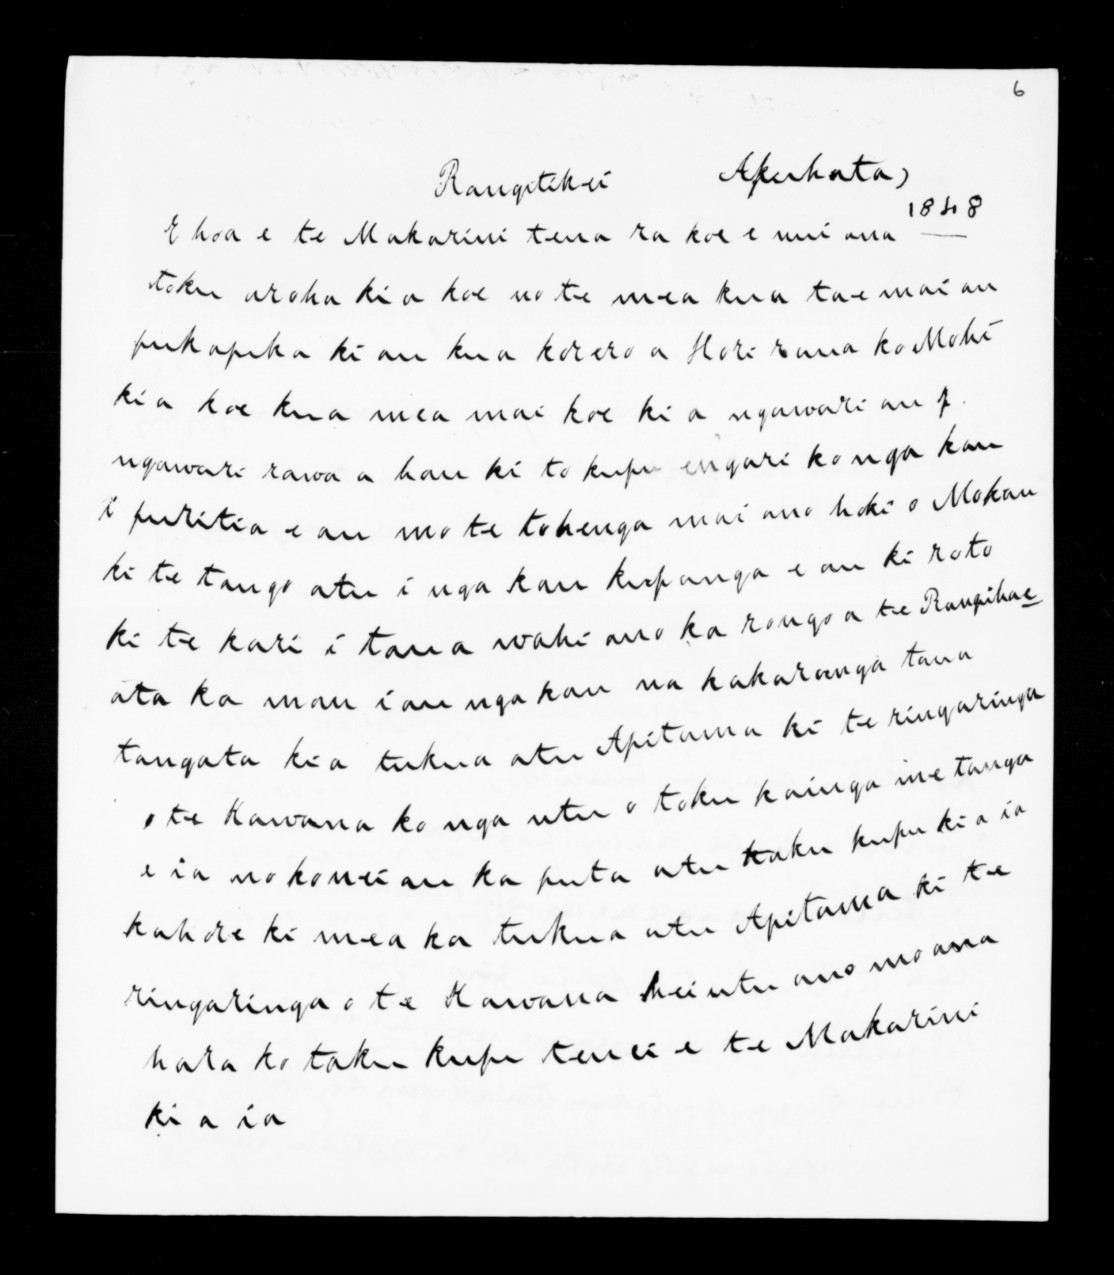 6
Rangitekei Akuhata,
1848
E hoa e te Makarini tena ra koe e nui ana
toku aroha ki a koe no te mea kua tae mai au
pukapuka ki au kua korero a Hori raua ko Mohi
ki a koe kua mea mai koe ki a ngawari au
ngawari rawa a hau ki to kupu engari ko nga kau
i puritia e au mo te tohenga mai ano hoki o Mokau
ki te tango atu i nga kau kupanga e au ki roto
ki te kari i tana wahi ano ka rongo a te Rangihae
ata ka mau i au nga kau na kakaranga tana
tangata kia tukua atu Apitama ki te ringaringa
o te Kawana ko nga utu o toku kainga ine tanga
e ia no konei au ka puta atu taku kupu ki a ia
kahore ki mea ka tukua atu Apitama ki te
ringaringa o te Kawana hei utu ano mo ana
hara ko taku kupu tenei e te Makarini
ki a ia